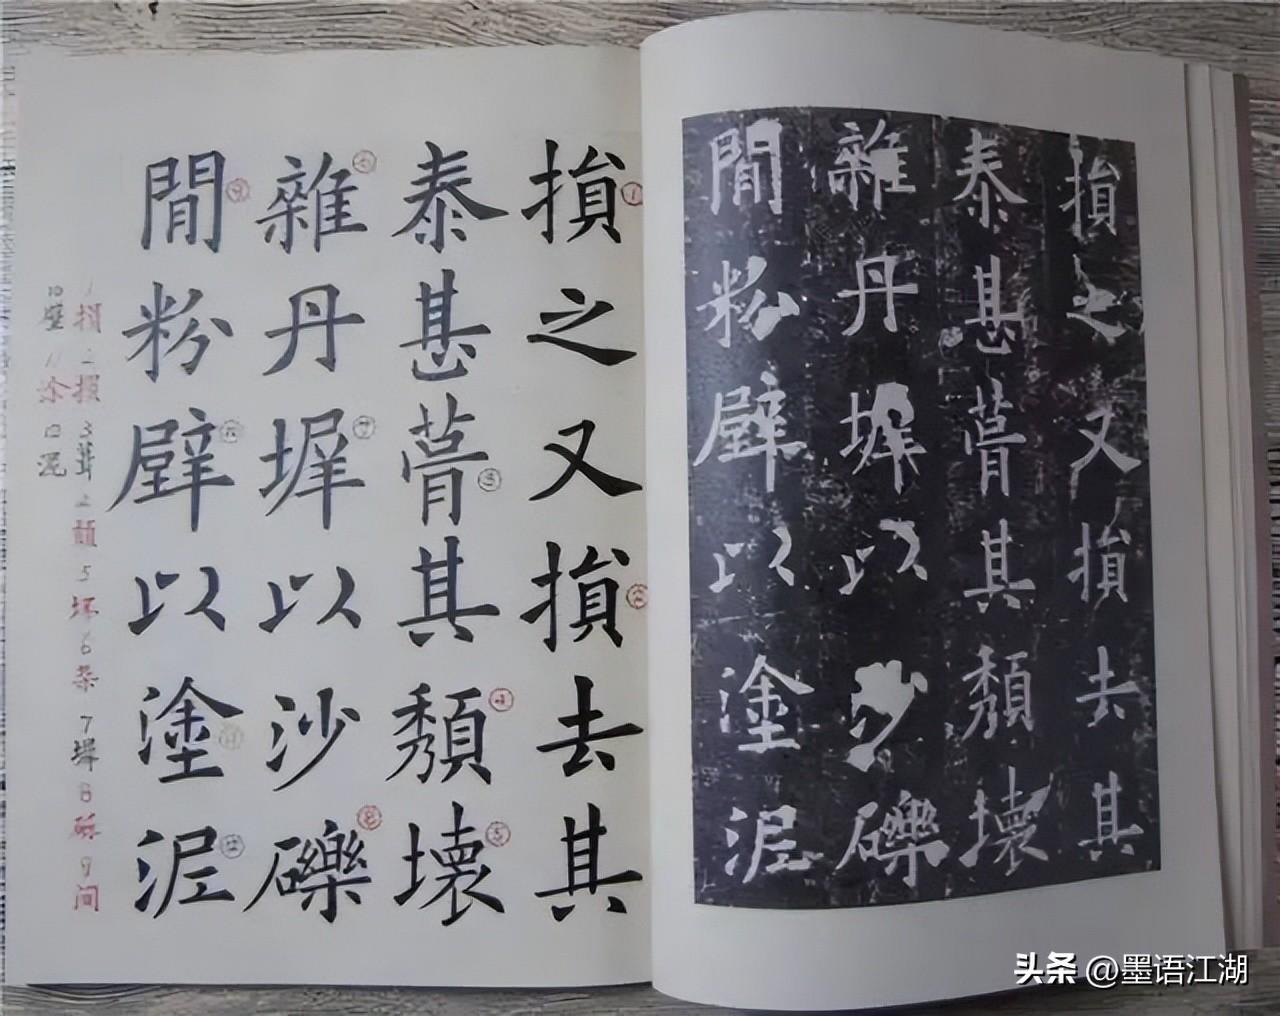 損之又損去其
泰甚葺其頹壞
雜丹墀以沙礫
閒粉壁以塗泥
1 损 2 损 3 葺 4 颓 5 坏 6 杂 7 墀 8 砾 9 间
10 壁 11 涂 12 泥
損之又損去其
泰甚葺其頹壞
雜丹墀以沙礫
閒粉壁以塗泥
头条 @墨语江湖